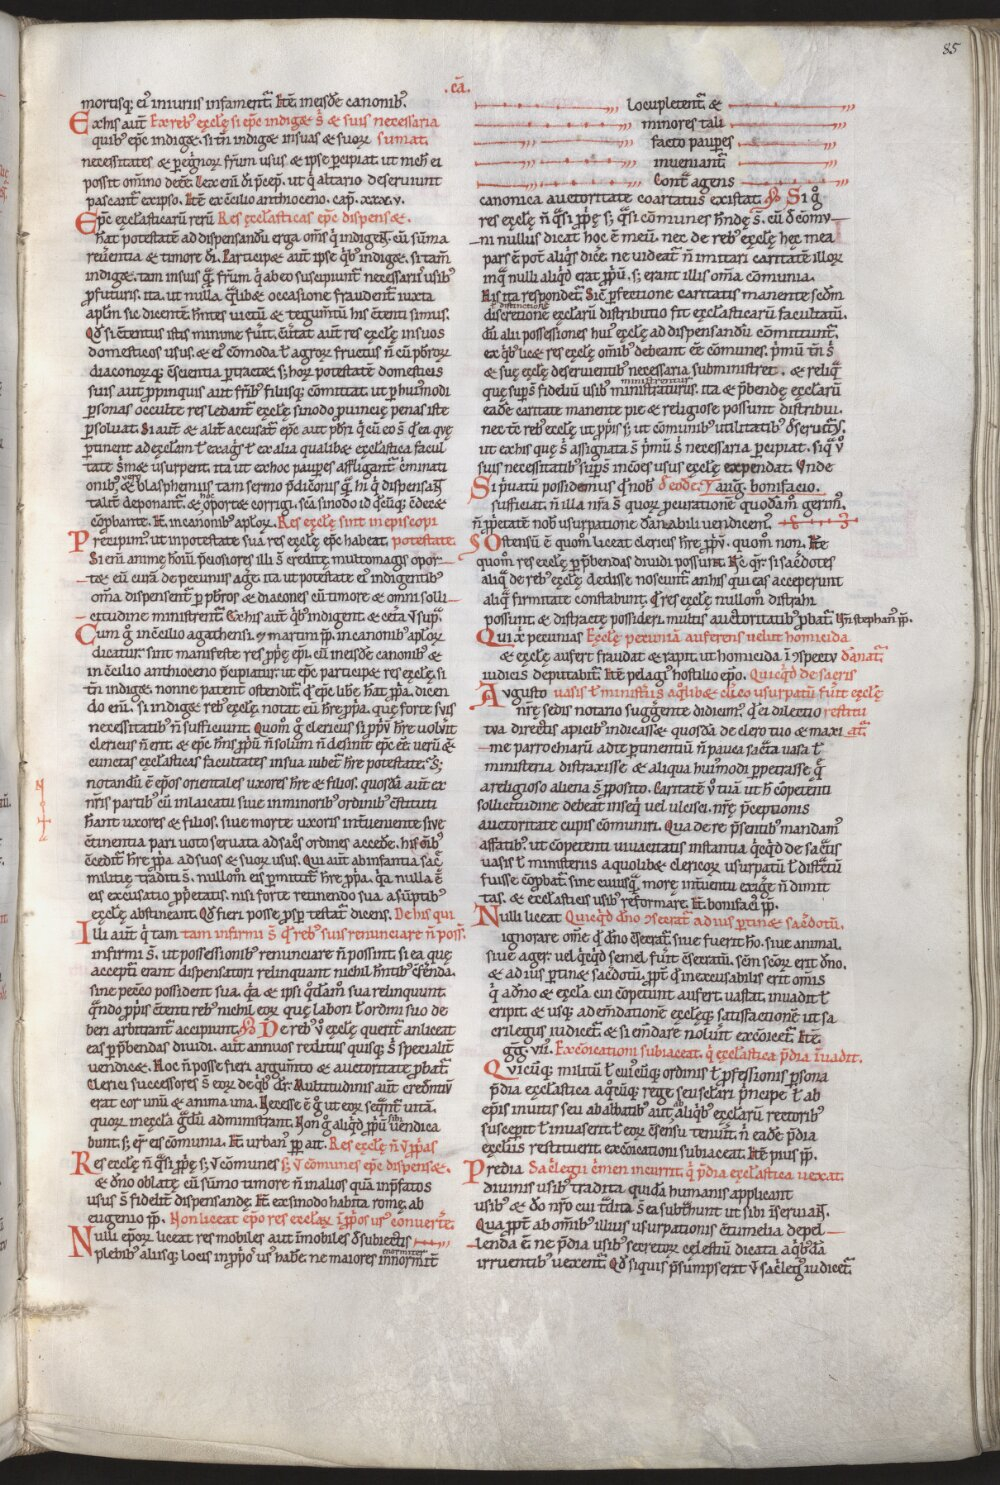 85
.cā.
mortisq; ei' iniuriis infament᷑. Itē. in eisdē canonib'.
Ex his aut̄ Ex reb' ęcclę si epc̄ indigeat s̄ & suis necessaria
quib' epc̄ indiget. si tn̄ indiget in suas & suoꝝ sumat.
necessitates & peregrinoꝝ fr̄m usus & ipse percipiat. ut nichil ei
possit omnino deesse. Lex eni᷑ dī precep. ut q altario deserviunt
pascant᷑ ex ipso. Itē ex c̄cilio anthioceno. cap̄. xxx.v.
Epc̄ ęcclesiasticaꝝ rerū Res ęcclesiasticas epc̄ dispenset.
hāt potestatē ad dispensandū erga om̄s q indigent. cū sūma
reverentia & timore dī. Participet aut̄ ipse qb' indiget. si tam̄
indiget. tam in suis quā fr̄um q ab eo suscipiunt᷑ necessariis usib'
profuturis. ita. ut nulla qualibet occasione fraudent᷑ iuxta
apłm sic dicente. hn̄tes victū & tegumtū his c̄tenti simus.
Qd̄ si c̄tentus istis minime fuit. c̄vertat aut̄ res ęcclę in suos
domesticos usus. & ei' c̄moda ł agroꝝ fructus n̄ cū pb̄roꝝ
diaconoꝝq; c̄scientia pertractet. s; hoꝝ potestatē domesticis
suis aut propinquis aut frīb' filiisq; c̄mittat. ut p huiusmodi
personas occulte res ledant᷑ ęcclę sinodo provincię penas iste
persoluat. Si aut̄ & alit᷑ accusat᷑ epc̄ aut pb̄ri q cū eo s̄ qd ea quę
pertinent ad ecclesiam ł ex agris ł ex alia qualibet ecclesiastica facul
tate s̄ibimet usurpent. ita ut ex hoc pauperes affligant᷑ c̄minati
onib' & blasphemiis tam sermo predicationis quā hi q dispensant
talit᷑ deponant᷑. & hos oportet corrigi. scā sinodo id q̄d c̄decet
c̄probante. Itē. in canonib' apłoꝝ. Res ęcclę sint in episcopi
Precipim' ut in potestate sua res ecclę epc̄ habeat. potestate.
Si eni᷑ animę hominū preciosiores illi s̄ credite multomagis opor
tet eū curā de pecuniis agere. ita ut potestate ei' indigentib'
om̄ia dispensent᷑ p pb̄ros & diacones cū timore & omni solli
citudine ministrent᷑. Ex his aut̄ qb' indigent. & cetera ut sup̄.
Cum g in c̄cilio agathensi. & martini pp̄. in canonib' apłoꝝ
dicatur. sint manifeste res proprię epī. cū in eisdē canonib' &
in c̄cilio anthioceno precipiatur. ut epc̄ participet res ecclę. si
tn̄ indiget. nonne patent᷑ ostendit᷑. qd epc̄ libere hāt propria. dicen
do eni᷑. si indiget reb' ecclę. notat eū hr̄e propria. que forte suis
necessitatib' n̄ sufficiunt. Quom̄ g clericus si propriū hr̄e voluit
clericus n̄ erit. & epc̄ hn̄s propriū n̄ solum n̄ desinit epc̄ ee᷑. verū &
cunctas ęcclesiasticas facultates in sua iubet᷑ hr̄e potestate. S;
notandū ē ep̄os orientales uxores hr̄e & filios. quosdā aut̄ ex
nr̄is partib' cū in laicatu siue in minorib' ordinib' c̄stituti
hānt uxores & filios. siue morte uxoris int᷑veniente sive
c̄tinentia pari voto servata ad sacros ordines accedere. his omnib'
c̄cedit᷑ hr̄e propria ad suos & suoꝝ usus. Qui aut̄ ab infantia sacre
militię traditi s̄. nullom̄ eis permittit᷑ hr̄e propria. qa nulla ē
eis excusatio proprietatis. nisi forte retinendo sua. a sūptib'
ecclę abstineant. Qd̄ fieri posse prosper testat᷑ dicens. De his qui
Illi aut̄ q tam tam infirmi s̄ qd reb' suis renunciare n̄ poss̄.
infirmi s̄. ut possessionib' renunciare n̄ possint. si ea que
accepturi erant dispensatori relinquant nichil hn̄tib' c̄ferenda.
sine peccato possident sua. qa & ipsi quodam sua relinquunt.
quando propriis c̄tenti reb' nichil eoꝝ que labori ł ordini suo de
beri arbitrant᷑ accipiunt. De reb' v ecclę querit᷑ an liceat
eas p prebendas dividi. aut annuos redditus quisq; s̄ specialit᷑
vendicet. Hoc n̄ posse fieri argumto & auctoritate probat᷑.
Clerici successores s̄ eoꝝ de qb' dr̄. Multitudinis aut̄ credentiū
erat cor unū & anima una. Necesse ē g ut eoꝝ sequant᷑ vitā.
quoꝝ in ecclā gradū administrant. Non g aliqd propriū sibi vendica
bunt. s; erunt eis c̄munia. Itē urban' pp̄ ait. Res ecclę n̄ v propas
Res ecclę n̄ quasi proprię s; ut c̄munes s; ut c̄munes epc̄ dispenset.
& dn̄o oblatę cū sūmo timore n̄ in alios quā in prefatos
usus s̄ fidelit᷑ dispensandę. Itē ex sinodo habita romę. ab
eugenio pp̄. Non liceat ep̄o res ecclaꝝ in proprios us' convertere.
Nulli ep̄oꝝ liceat res mobiles aut in mobiles de subiectis
plebib' aliisq; locis in proprio us' habere. ne maiores innormit᷑
locupletent᷑. &
minores tali
facto pauperes
inveniant᷑.
Cont̄ agens
canonica auctoritate coartatus existat. Si g
res ecclę n̄ quasi proprię s; quasi c̄munes hn̄dę s̄. cū de c̄muni
ni nullus dicat. hoc ē meū. nec de reb' ecclę hec mea
pars ē pot̄ aliqs dicere. ne videat᷑ n̄ imitari caritatē illoꝝ
in qua nulli aliqd erat propriū. s; erant illis om̄ia comunia.
His ita respondet᷑. Sicut perfectione caritatis manente scdm
discretione ecclaꝝ distributio fit ecclesiasticaꝝ facultatū.
dū alii possessiones hui' ecclę ad dispensandū c̄mittunt᷑.
ex qb' licet res ecclę om̄ib' debeant ee᷑ c̄munes. primū tn̄ s̄
& suę ecclę deservientib' necessaria subministret. & reliq
que supersunt fideliū usib' ministraturus. ita & prebendę ecclaꝝ
eadē caritate manente pie & religiose possunt distribui.
nec tē reb' ecclę. ut propriis s; ut c̄munib' utilitatib' deservituris.
ut ex his que s̄ assignata s̄ primū s̄ necessaria percipiat. siquid v
suis necessitatib' supersit in c̄moēs usus ecclę expendat. Unde
Si privatū possidemus quod nob' De eodē. aug. bonifacio.
sufficiat. n̄ illa nr̄a s̄ quoꝝ procurationē quodam̄ gerim'.
n̄ proprietatē nob' usurpatione damnabili vendicem'.
Ostensū ē quom̄ liceat clericis hr̄e propriū. quom̄ non. Itē
quom̄ res ecclę p prebendas dividi possunt. Itē qr̄. si sacerdotes
aliqa de reb' ecclę dedisse noscunt᷑. an his qui eas acceperunt
aliqa firmitate constabunt. qd res ecclę nullom̄ distrahi
possunt. & distractę possideri. multis auctoritatib' probat᷑. Un̄ stephan' pp̄.
Qui xp̄i pecunias Ecclę pecuniā auferens velut homicida
& ecclę aufert fraudat & rapit. ut homicida in c̄spectu damnat᷑.
iudicis deputabit᷑. Itē pelagi' hostilio ep̄o. Quicqd de sacris
Augusto vasis ł ministeriis a qolibet clerico usurpatū fuit ecclę
nr̄ę sedis notario suggerente didicim'. qd ei dilectio restitu
tua directis apicib' indicasset quosdā de clero tuo & maxi at᷑.
me parrochiarū ad te pertinentiū n̄ pauca sacrata vasa ł
ministeria distraxisse & aliqua huiusmodi perpetrasse que
a religioso aliena s̄ proposito. Caritatē v tuā ut h̄ c̄petenti
sollicitudine debeat inseqi vel ulcisci. nr̄ę preceptionis
auctoritate cupis c̄muniri. Qua de re presentib' mandam'
affatib'. ut c̄petenti vivacitatis instantia qcqd de sacratis
vasis ł ministeriis a quolibet clericoꝝ usurpatū ł distractū
fuisse c̄probat᷑. sine cuiusquam more interventu exigere n̄ dimit
tas. & ecclasticis usib' reformare. Itē. bonifacii pp̄.
Nulli liceat Quicqd dn̄o c̄secrat᷑ ad ius pertinet sacerdotū.
ignorare om̄e qd dn̄o c̄secrat᷑. siue fuerit hō. siue animal.
siue ager. vel qcqd semel fuit c̄secratū. scm̄ scoꝝ erit dn̄o.
& ad ius pertinet sacerdotū. propt᷑ qd inexcusabilis erit omīs
q a dn̄o & ęccła cui c̄petunt aufert. vastat. invadit ł
eripit. & usq; ad emdationē ęccleq; satisfactione ut sa
crilegus iudicet᷑. & si emdare noluit excoīcet᷑. Itē.
gg. vii. Excōicationi subiaceat. q ecclastica predia invadit.
Quicūq; militū ł cui'cūq; ordinis ł professionis persona
predia ęcclastica a qocūq; rege seu secłari principe ł ab
ep̄is invitis seu ab abbatib' aut aliqb' ęcclaꝝ rectorib'
susceperit ł invaserit. ł eoꝝ c̄sensu tenuit. n̄ eadē predia
ecclis restituerit. excōicationi subiaceat. Itē pius pp̄.
Predia Sacrilegii c̄men incurrit. q predia ęcclastica vexat.
divinis usib' tradita. quidā humanis applicant
usib'. & do nr̄o cui tradita s̄ ea subtrahunt. ut sibi īserviant.
Qua propt᷑ ab om̄ib' illius usurpationis c̄tumelia depel
lenda ē ne predia usib' secretoꝝ celestiū dicata a qibdā
irruentib' vexent᷑. Qd̄ siquis presumpserit ut sacrileg' iudicet᷑.